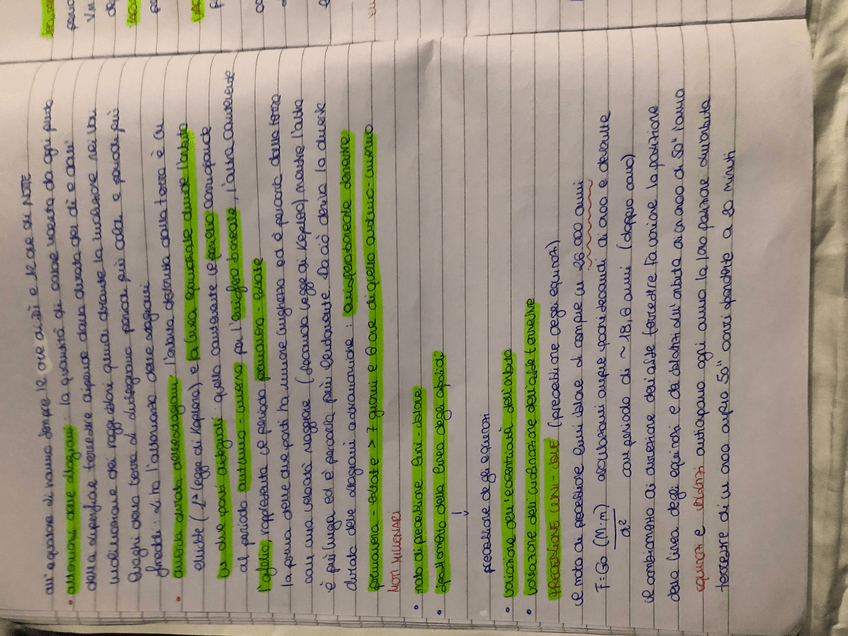 all'equatore si hanno sempre 12 ore di dì e 12 ore di NOTTE
• alternanza delle stagioni: la quantità di calore ricevuta da ogni punto
della superficie terrestre dipende dalla durata del dì e dall'
inclinazione dei raggi solari quindi durante la rivoluzione nei vari
luoghi della terra si distinguono periodi più caldi e periodi più
freddi: si ha l'alternanza delle stagioni
• diversa durata delle stagioni: l'orbita descritta dalla terra è un
ellisse (1ª legge di Keplero) e la linea equinoziale divide l'orbita
in due parti disuguali quella contenente il perielio corrisponde
al periodo autunno-inverno per l'emisfero boreale, l'altra contenente
l'afelio, rappresenta il periodo primavera-estate
la prima delle due parti ha minore lunghezza ed è percorsa dalla terra
con una velocità maggiore (seconda legge di Keplero) mentre l'altra
è più lunga ed è percorsa più lentamente. Da ciò deriva la diversa
durata delle stagioni astronomiche: emisfero boreale semestre
primavera-estate > 7 giorni e 6 ore di quello autunno-inverno
MOTI MILLENARI
• moto di precessione luni-solare
• spostamento della linea degli apsidi
↓
precessione degli equinozi
• variazione dell'eccentricità dell'orbita
• variazione dell'inclinazione dell'asse terrestre
PRECESSIONE LUNI-SOLARE (precessione degli equinozi)
il moto di precessione luni solare si compie in 26 000 anni
F = G (M·m) oscillazioni ampie pochi secondi di arco e descritte
d² con periodo di ~ 18,6 anni (doppio cono)
il cambiamento di direzione dell'asse terrestre fa variare la posizione
della linea degli equinozi e dei solstizi sull'orbita di un arco di 50" l'anno
equinozi e solstizi anticipano ogni anno la loro posizione sull'orbita
terrestre di un arco ampio 50" corrispondente a 20 minuti